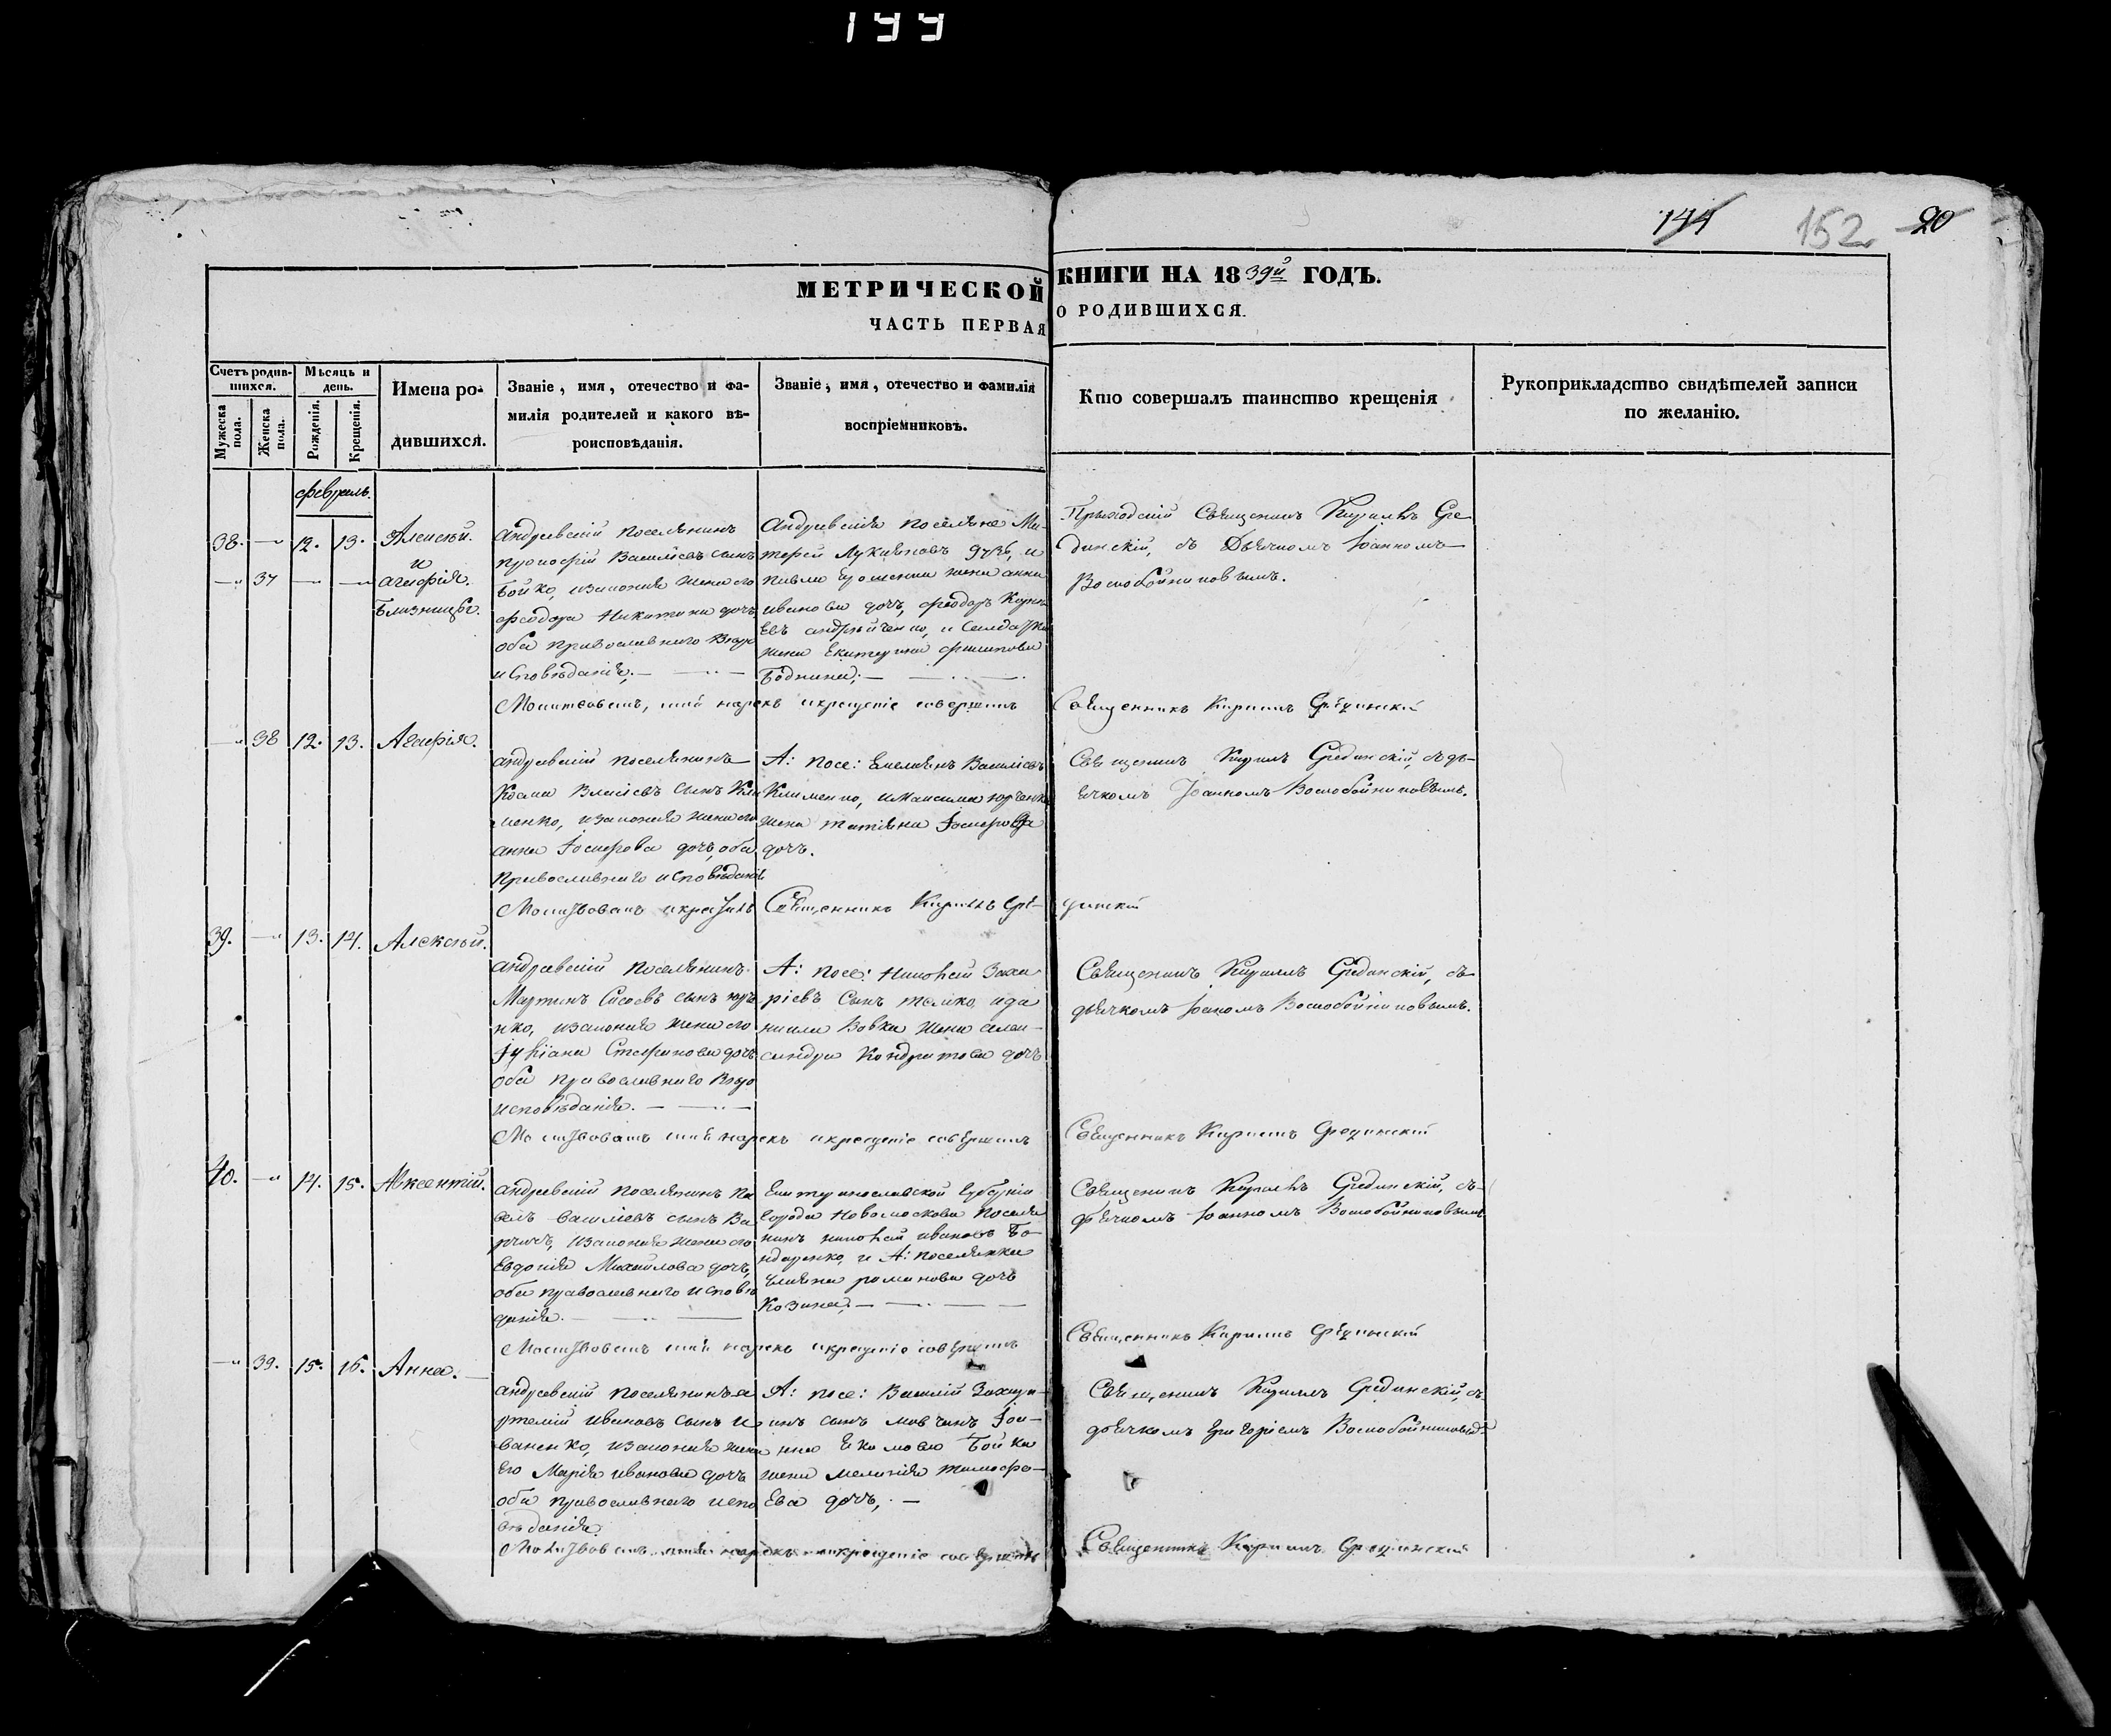 199
144 152 20
МЕТРИЧЕСКОЙ КНИГИ НА 1839й ГОДЪ.
ЧАСТЬ ПЕРВАЯ О РОДИВШИХСЯ.
Счетъ родив-
шихся.
Мужеска
пола.
Женска
пола.
Мѣсяць и
день.
Рожденія.
Крещенія.
Имена ро-
дившихся.
Званіе, имя, отечество и фа-
милія родителей и какого вѣ-
роисповѣданія.
Званіе, имя, отечество и фамилія
воспріемниковъ.
Кто совершалъ таинство крещенія
Рукоприкладство свидѣтелей записи
по желанію.
февраль.
38. —" 12. 13. Алексѣй.
и
—" 37 — —" агафія.
Близницы.
андреевскій поселянинъ
прокофій Васильевъ сынъ
Бойко, изаконная жена его
феодора Никитина дочь
оба православнаго
исповѣданія;
Андреевскія поселяне
Лукьяновъ и
жена анна
иванова дочь, феодоръ
и Солдатка
жена Екатерина филипова
Приходскій Священникъ Кирилъ Сре
динскій, съ Дьячкомъ Іоанномъ
Воскобойниковымъ.
Молитвовалъ, имя нарекъ икрещеніе совершилъ Священникъ Кирилъ Срединскій
—" 38 12. 13. Агафія.
андреевскій поселянинъ
Косма Власіевъ сынъ Кли
менко, изаконная жена его
анна Іосифова дочь, оба
православнаго исповѣданія
А: посе: Емельянъ Василіевъ
Клименко, иМаксима юрченка
жена татіяна Іосифова
дочь.
Священникъ Кирилъ Срединскій, съ дь-
ячкомъ Іоанномъ Воскобойниковымъ.
Молитвовалъ икрестилъ Священникъ Кирилъ Сре-
динскій
39. —" 13. 14. Алексѣй.
андреевскій поселянинъ
Мартинъ Сысоевъ сынъ юрче
нко, изаконная жена его
Іуліана Стефанова дочь
оба православнаго вѣро
исповѣданія.
А: посе: Тимофей Заха
ріевъ Сынъ и да
нила Вовка жена алек-
сандра Кондратова дочь
Священникъ Кирилъ Срединскій, съ
дьячкомъ Іоаномъ Воскобойниковымъ.
Молитвовалъ имя нарекъ икрещеніе совершилъ Священникъ Кирилъ Срединскій
40. —" 14. 15. Авксентій.
андреевскій поселянинъ Па
велъ василіевъ сынъ
изаконная жена его
Евдокія Михайлова дочь,
оба православнаго исповѣ
данія.
Екатеринославской Губерніи
города Новомосковска поселя
нинъ ивановъ Бо
ндаренко, и А: поселянка
романова дочь
Козина;
Священникъ Кирилъ Срединскій, съ
дьячкомъ Іоанномъ Воскобойниковымъ
Молитвовалъ имя нарекъ икрещеніе совершилъ Священникъ Кирилъ Срединскій
—" 39. 15. 16. Анна.
андреевскій поселянинъ а
ртемій Ивановъ сынъ И
ваненко, изаконная жена
его Марія иванова дочь
оба православнаго испо
вѣданія.
А: посе: Василій Захари-
инъ сынъ
Бойка
жена меланія тимофе-
ева дочь,
Священникъ Кирилъ Срединскій, съ
дьячкомъ Григоріемъ Воскобойниковымъ
Молитвовалъ имя нарекъ икрещеніе совершилъ Священникъ Кирилъ Срединскій